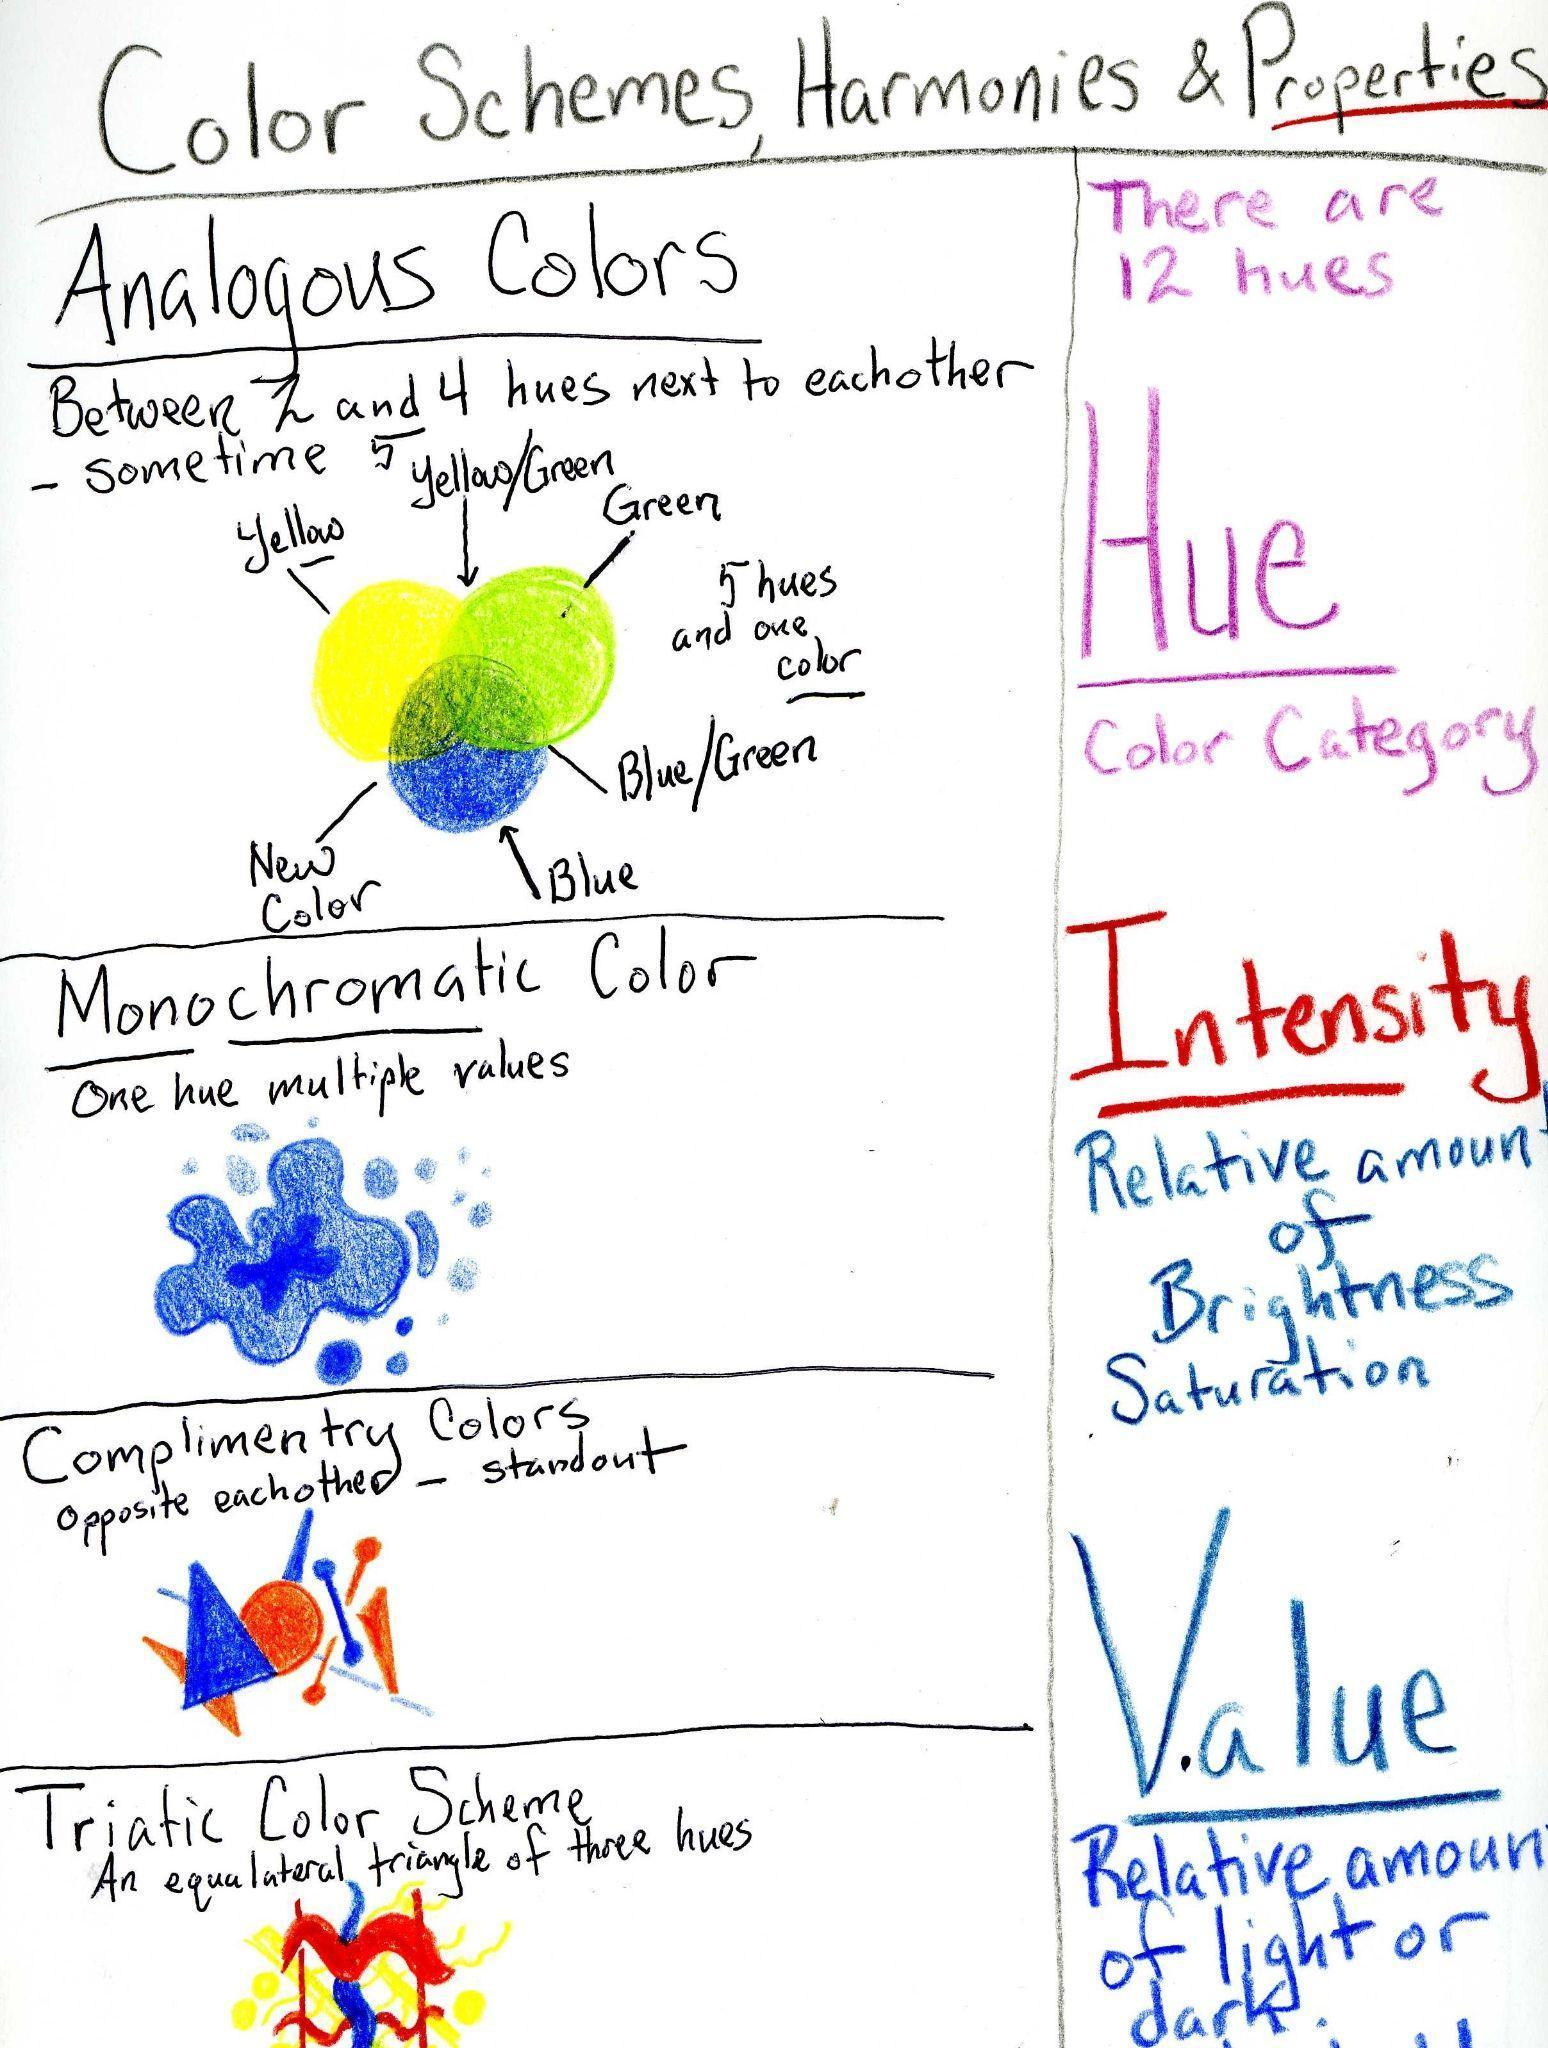 Color Schemes, Harmonies & Properties
Analogous Colors
Between 2 and 4 hues next to eachother
- sometime 5
Yellow/Green
Yellow
Green
5 hues
and one
color
Blue/Green
New
Color
Blue
Monochromatic Color
One hue multiple values
Complimentry Colors
Opposite eachother - standout
Triatic Color Scheme
An equalateral triangle of three hues
There are
12 hues
Hue
Color Category
Intensity
Relative amount
of
Brightness
Saturation
Value
Relative amoun
of light or
dark.